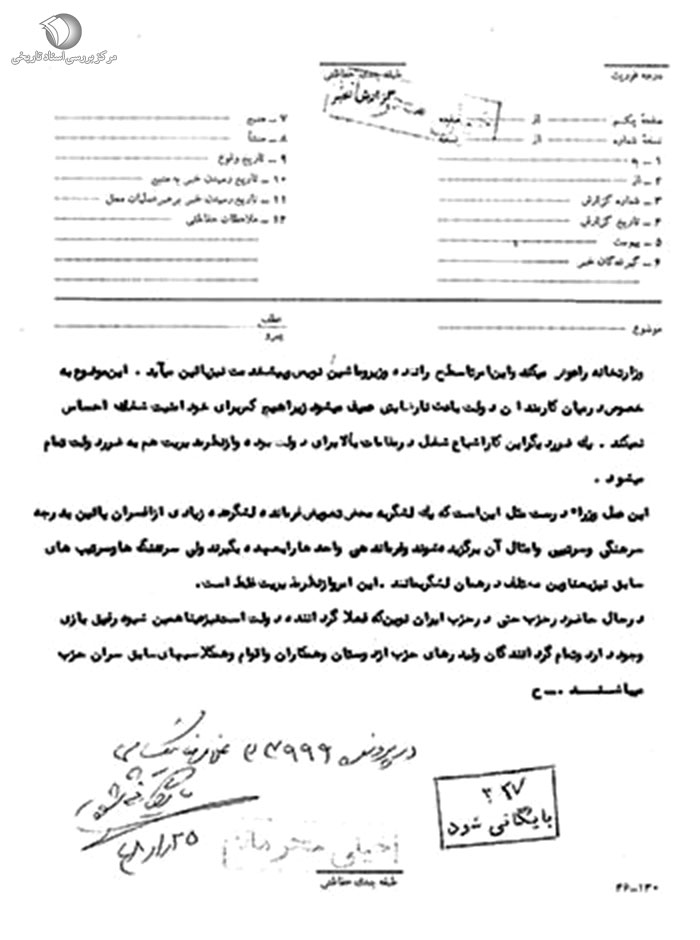 مرکز بررسی اسناد تاریخی
درجه فوریت
طبقه بندی حفاظتی
گزارش خبر
صفحه یکم از صفحه
نسخه شماره از نسخه
۱ ـ به
۲ ـ از
۳ ـ شماره گزارش
۴ ـ تاریخ گزارش
۵ ـ پیوست
۶ ـ گیرندگان خبر
۷ ـ منبع
۸ ـ منشأ
۹ ـ تاریخ وقوع
۱۰ ـ تاریخ رسیدن خبر به منبع
۱۱ ـ تاریخ رسیدن خبر برهبر عملیات محل
۱۲ ـ ملاحظات حفاظتی
موضوع
عطف
پیرو
وزارتخانه راعوض میکند واین امرتاسطح راننده وزیروماشین نویس وپیشخدمت نیزپائین میآید . این موضوع به
خصوص درمیان کارمندان دولت باعث نارضایتی عمیق میشود زیراهیچ کس برای خود امنیت شغلی احساس
نمیکند . یک ضرر دیگراین کار اشباع شغل درمقامات بالا برای دولت بوده وازنظرمدیریت هم به ضرردولت تمام
میشود .
این عمل وزراء درست مثل این است که یک لشگربه محض تعویض فرمانده لشگرعده زیادی ازافسران پائین بدرجه
سرهنگی وسرتیپی وامثال آن برگزیده شوند وفرماندهی واحد هارابعهده بگیرند ولی سرهنگ هاوسرتیپ های
سابق نیزبعناوین مختلف درهمان لشگربمانند . این امرازنظرمدیریت غلط است.
درحال حاضردرحزب حتی درحزب ایران نوین که فعلا گرداننده دولت است نیزعینا همین شیوه رفیق بازی
وجوددارد وتمام گردانندگان ولیدرهای حزب ازدوستان وهمکاران واقوام وهمکلاسیهای سابق سران حزب
میباشند . ح
در پرونده ۲۳۹۹۹ غلامرضا نیک‌پی
بایگانی شود
۳۲۷
بایگانی شود
خیلی محرمانه
طبقه بندی حفاظتی
۴۶-۱۳۰